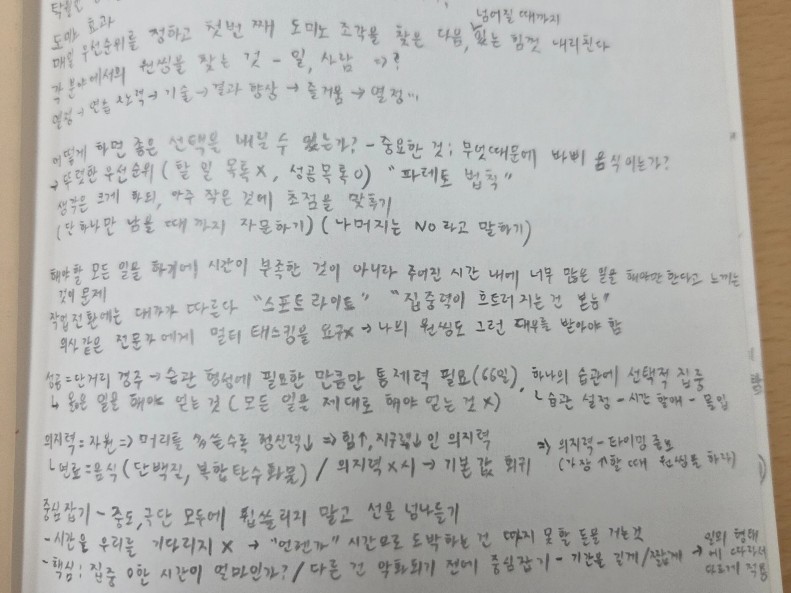 도미노 효과
넘어질 때까지
매일 우선순위를 정하고 첫번째 도미노 조각을 찾은 다음, 있는 힘껏 내리친다
각 분야에서의 원씽을 찾는 것 - 일, 사람 ⇒ ?
열정 → 연습 노력 → 기술 → 결과 향상 → 즐거움 → 열정...
어떻게 하면 좋은 선택을 내릴 수 있는가? - 중요한 것; 무엇때문에 바삐 움직이는가?
→ 뚜렷한 우선순위 (할 일 목록 X, 성공목록 O) "파레토 법칙"
생각은 크게 하되, 아주 작은 것에 초점을 맞추기
(단 하나만 남을 때 까지 자문하기) (나머지는 NO 라고 말하기)
해야할 모든 일을 하기에 시간이 부족한 것이 아니라 주어진 시간 내에 너무 많은 일을 해야만 한다고 느끼는
것이 문제
작업전환에는 대가가 따른다 "스포트라이트" "집중력이 흐트러지는 건 본능"
의사 같은 전문가에게 멀티 태스킹을 요구X → 나의 원씽도 그런 대우를 받아야 함
성공 = 단거리 경주 → 습관 형성에 필요한 만큼만 통제력 필요(66일), 하나의 습관에 선택적 집중
↳ 옳은 일을 해야 얻는 것 (모든 일을 제대로 해야 얻는 것 X) ↳ 습관 설정 - 시간 할애 - 몰입
의지력 = 자원 ⇒ 머리를 쓸수록 정신력↓ ⇒ 힘↑, 지구력↓인 의지력 ⇒ 의지력 - 타이밍 중요
↳ 연료 = 음식 (단백질, 복합탄수화물) / 의지력 X시 → 기본값 회귀 (가장 ↑할 때 원씽을 하라)
중심잡기 - 중도, 극단 모두에 휩쓸리지 말고 선을 넘나들기
- 시간은 우리를 기다리지 X → "언젠가" 시간으로 도박하는 건 따지 못할 돈을 거는것
- 핵심: 집중 O한 시간이 얼마인가? / 다른 건 악화되기 전에 중심잡기 - 기간을 길게/짧게 → 일의 형태
에 따라서
다르게 적용